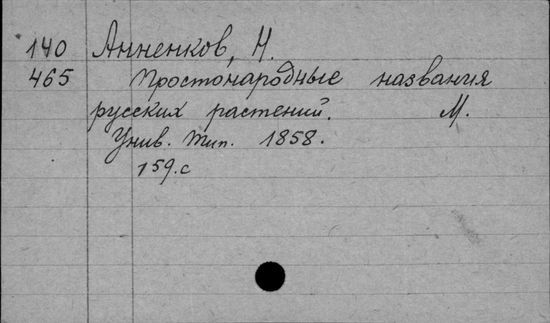 140 Анненков, Н.
465 Простонародные названия
русских растений. М.
Унив. тип. 1858.
159.с